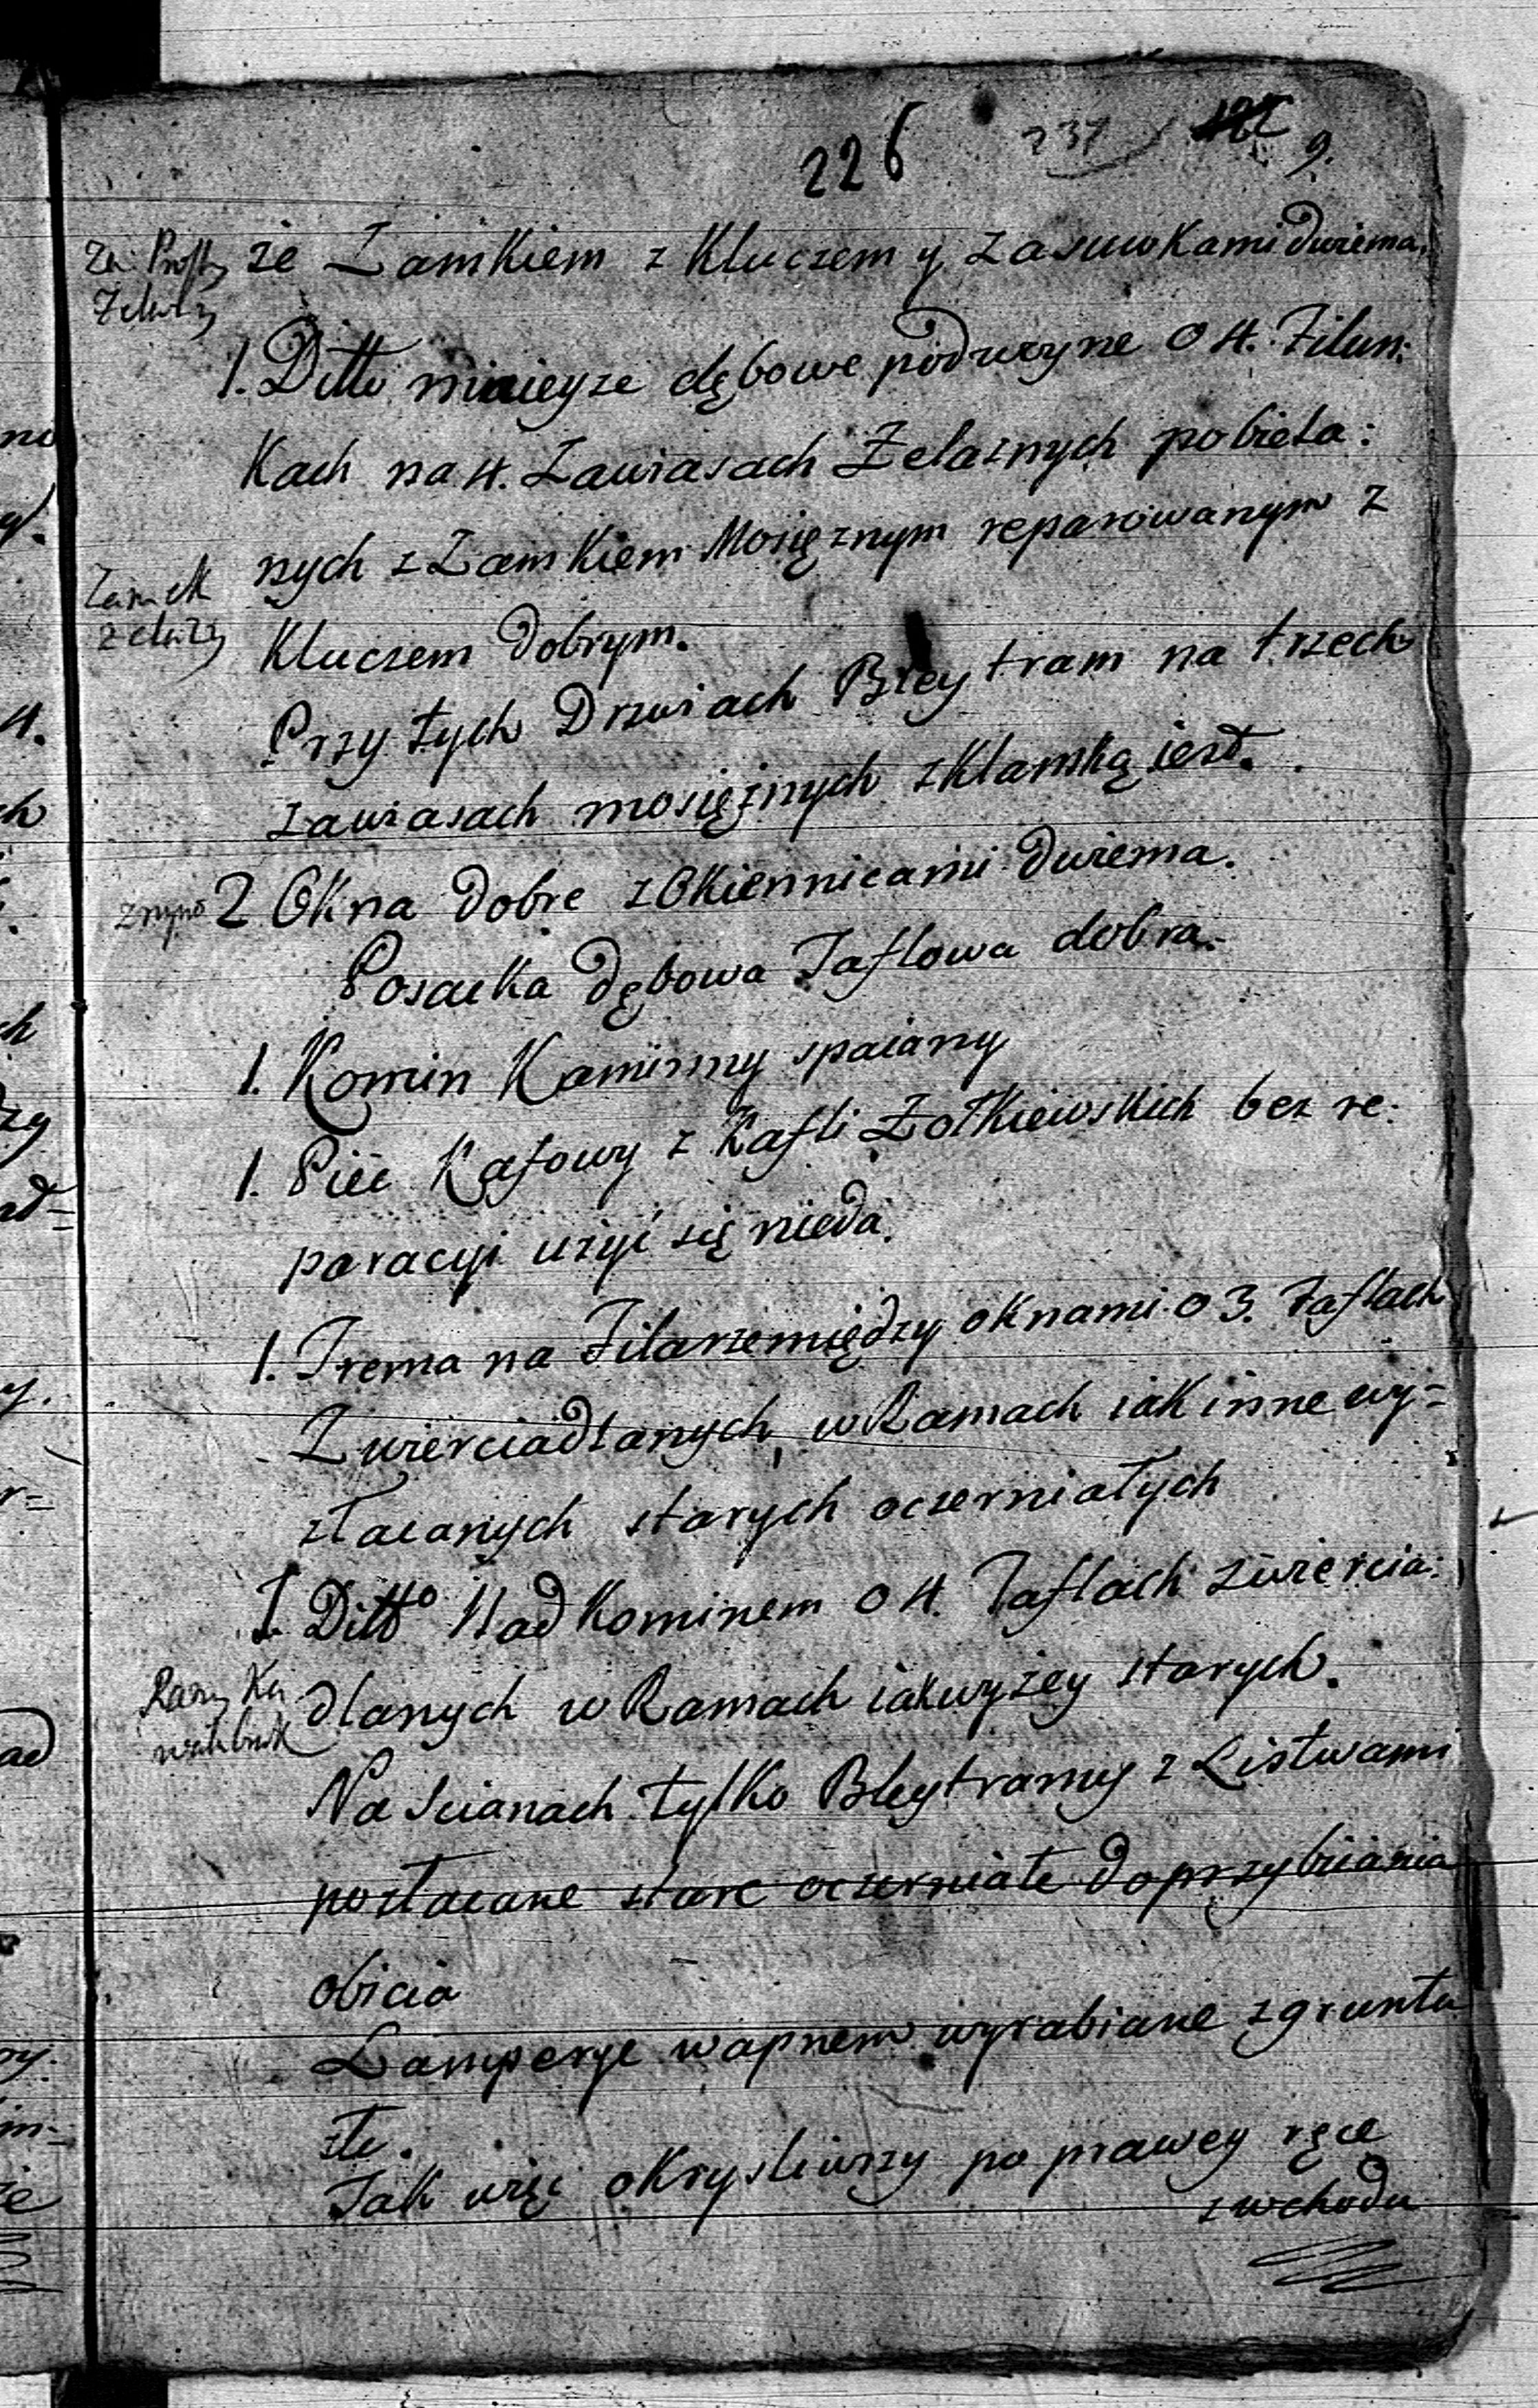 226 237 9.
że Zamkiem z Kluczem y Zasuwkami dwiema.
Żelazny
1. Ditto mnieysze dębowe podwoyne o 4. Filun:
Kach na 4. Zawiasach Żelaznych pobiela:
nych z Zamkiem Mosięznym reparowanym z
Zamek
żelazny
Kluczem dobrym.
Przy tych Drzwiach Bleytram na trzech
zawiasach mosiężnych z Klamką iest.
2 Okna dobre z Okiennicami dwiema.
Posacka dębowa Taflowa dobra.
1. Komin Kamiinny spaiany
1. Piec Kaflowy z Kafli Żołkiewskich bez re:
paracyi użyć się nieda.
1. Trema na Filarze między oknami o 3. Taflach
Zwierciadlanych, w Ramach iak inne wy=
złacanych starych oczerniałych
1. Ditto Nad Kominem o 4. Taflach zwiercia:
dlanych w Ramach iak wyżey starych.
Na Scianach tylko Bleytramy z Listwami
pozłacane stare oczerniałe do przybiiania
obicia
Lamperye wapnem wyrabiane z gruntu
złe.
Tak więc okrysliwszy po prawey ręce
z wchodu